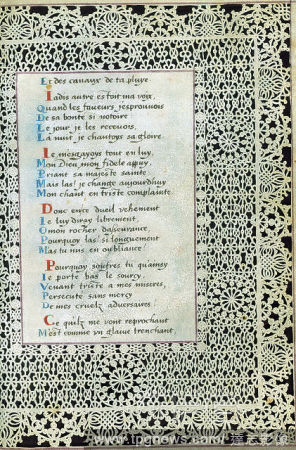 Et des canaux de ta pluye
Iadis autre estoit ma voix,
Quand les faueurs j'esprouuois
De sa bonté si notoire
Le jour je les receuois,
La nuit je chantoys sa gloire.
Ie m'esgayoys tout en luy,
Mon Dieu, mon fidele appuy,
Priant sa majesté sainte
Mais las! je change aujourdhuy
Mon chant en triste complainte.
Donc encedueil vehement
Ie luy diray librement,
O mon rocher d'asseurance
Pourquoy las! si longuement
M'as tu mis en oubliance.
Pourquoy soufres tu qu'ainsy
Ie porte bas le sourcy,
Voyant triste a mes miseres,
Persecuté sans mercy
De mes cruelz aduersaires.
Ce quilz me vont reprochant
M'est comme vn glaiue trenchant
www.tpgnews.com/达志影像